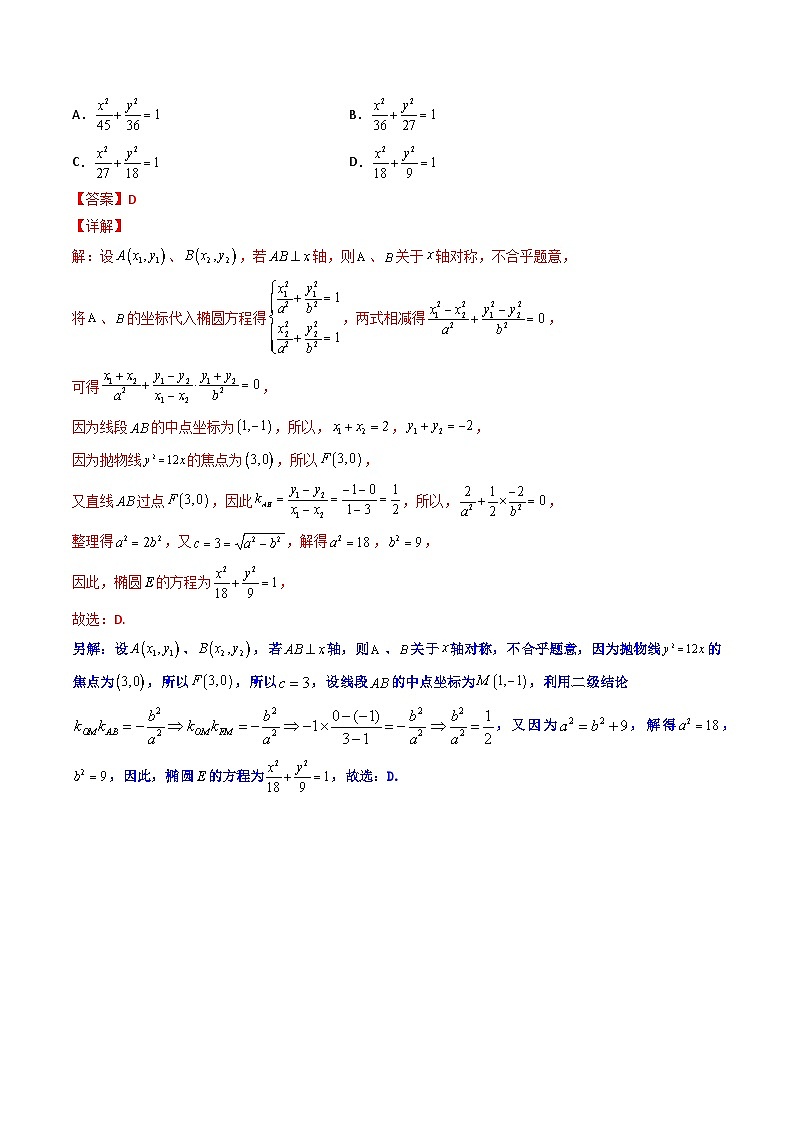 A. x²/45 + y²/36 = 1 B. x²/36 + y²/27 = 1
C. x²/27 + y²/18 = 1 D. x²/18 + y²/9 = 1
【答案】D
【详解】
解:设A(x₁,y₁)、B(x₂,y₂),若AB⊥x轴,则A、B关于x轴对称,不合乎题意,
将A、B的坐标代入椭圆方程得{x₁²/a² + y₁²/b² = 1, x₂²/a² + y₂²/b² = 1,两式相减得(x₁²−x₂²)/a² + (y₁²−y₂²)/b² = 0,
可得(x₁+x₂)/a² + (y₁−y₂)/(x₁−x₂)·(y₁+y₂)/b² = 0,
因为线段AB的中点坐标为(1,−1),所以,x₁+x₂=2,y₁+y₂=−2,
因为抛物线y²=12x的焦点为(3,0),所以F(3,0),
又直线AB过点F(3,0),因此k_AB = (y₁−y₂)/(x₁−x₂) = (−1−0)/(1−3) = 1/2,所以,2/a² + 1/2 × −2/b² = 0,
整理得a²=2b²,又c=3=√(a²−b²),解得a²=18,b²=9,
因此,椭圆E的方程为x²/18 + y²/9 = 1,
故选:D.
另解:设A(x₁,y₁)、B(x₂,y₂),若AB⊥x轴,则A、B关于x轴对称,不合乎题意,因为抛物线y²=12x的
焦点为(3,0),所以F(3,0),所以c=3,设线段AB的中点坐标为M(1,−1),利用二级结论
k_OM k_AB = −b²/a² ⇒ k_OM k_FM = −b²/a² ⇒ −1×(0−(−1))/(3−1) = −b²/a² ⇒ b²/a² = 1/2,又因为a²=b²+9,解得a²=18,
b²=9,因此,椭圆E的方程为x²/18 + y²/9 = 1,故选:D.